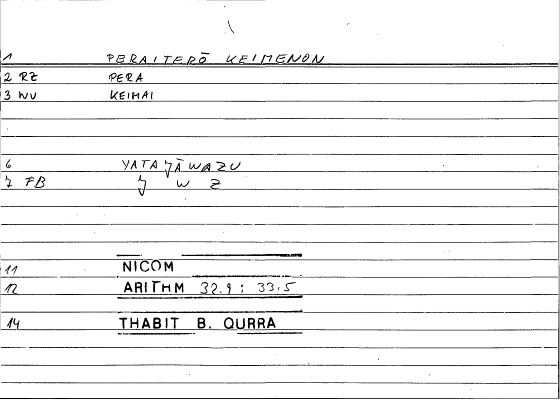 1 PERAITERŌ KEIMENON
2 RZ PERA
3 WV KEIMAI
6 YATAǮĀWAZU
7 FB Ǯ W Z
11 NICOM
12 ARITHM 32.9 : 33.5
14 THABIT B. QURRA